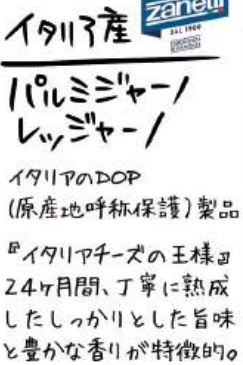 イタリア産
zanetti
DAL 1900
パルミジャーノ
レッジャーノ
イタリアのDOP
(原産地呼称保護)製品
『イタリアチーズの王様』
24ヶ月間、丁寧に熟成
したしっかりとした旨味
と豊かな香りが特徴的。